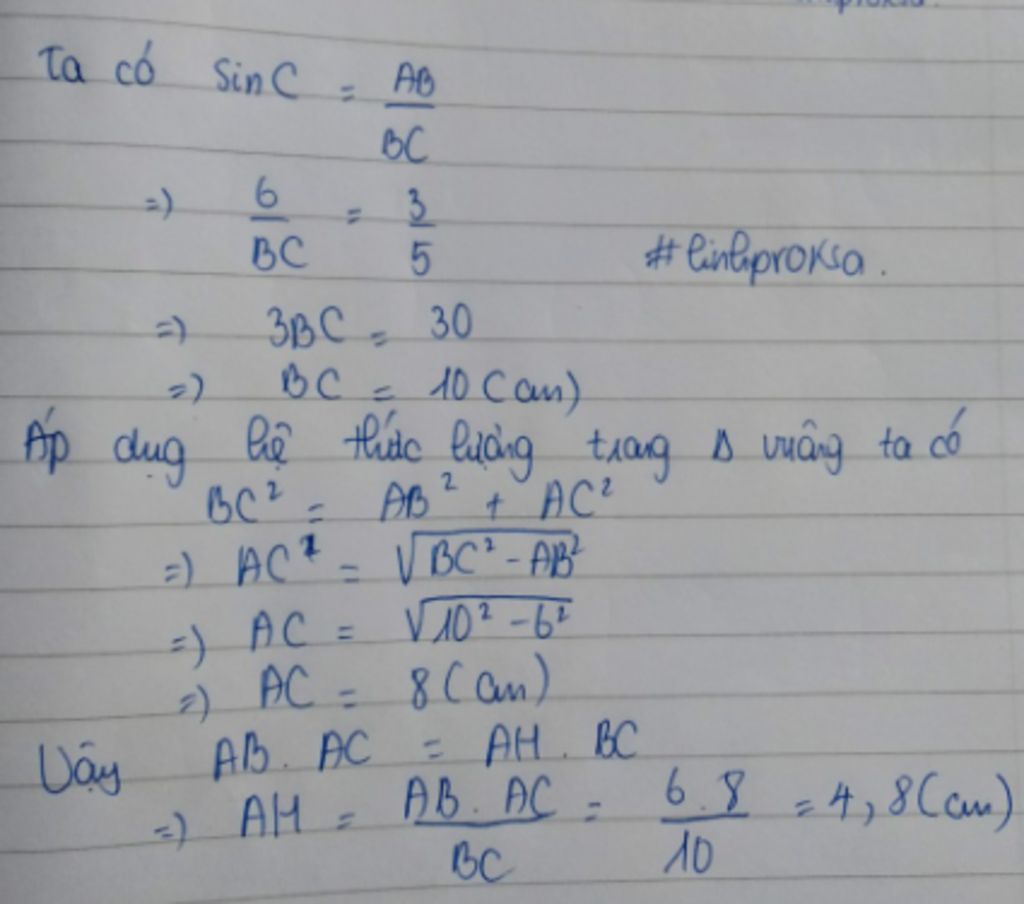 Ta có sinC = AB/BC
=) 6/BC = 3/5
#linhproksa.
=) 3BC = 30
=) BC = 10 (cm)
Áp dụg hệ thức lượng trong Δ vuông ta có
BC² = AB² + AC²
=) AC² = √BC² - AB²
=) AC = √10² - 6²
=) AC = 8 (cm)
Vậy AB . AC = AH . BC
=) AH = AB . AC/BC = 6 . 8/10 = 4,8 (cm)